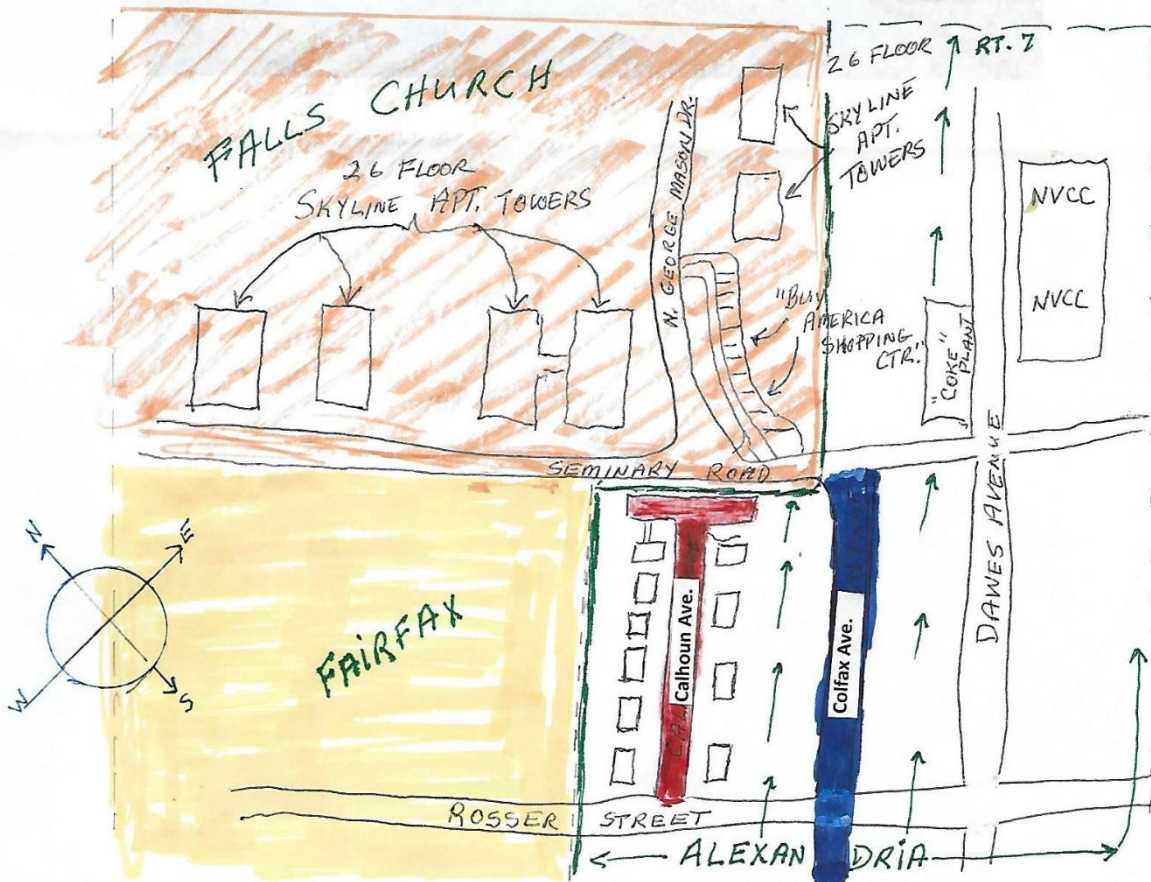 FALLS CHURCH
26 FLOOR
SKYLINE APT. TOWERS
N. GEORGE MASON DR.
26 FLOOR
SKYLINE
APT.
TOWERS
RT. 7
NVCC
NVCC
"BUY
AMERICA
SHOPPING
CTR."
"COKE"
PLANT
SEMINARY ROAD
DAWES AVENUE
N
E
W
S
FAIRFAX
Calhoun Ave.
Colfax Ave.
ROSSER STREET
ALEXANDRIA